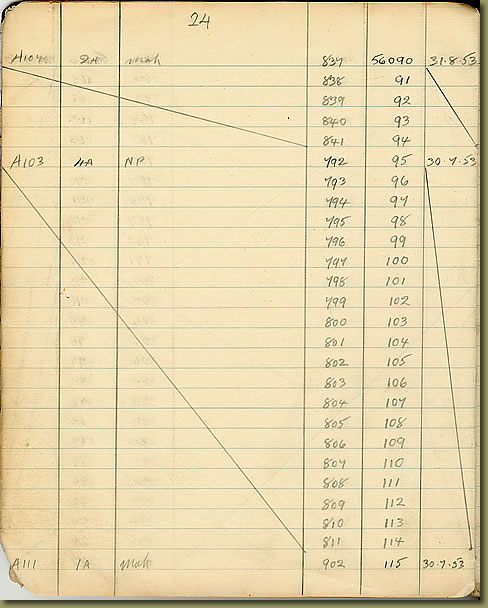 24
A104 2A 837 56090 31.8.53
838 91
839 92
840 93
841 94
A103 4A NP 792 95 30.7.53
793 96
794 97
795 98
796 99
797 100
798 101
799 102
800 103
801 104
802 105
803 106
804 107
805 108
806 109
807 110
808 111
809 112
810 113
811 114
A111 1A 902 115 30.7.53